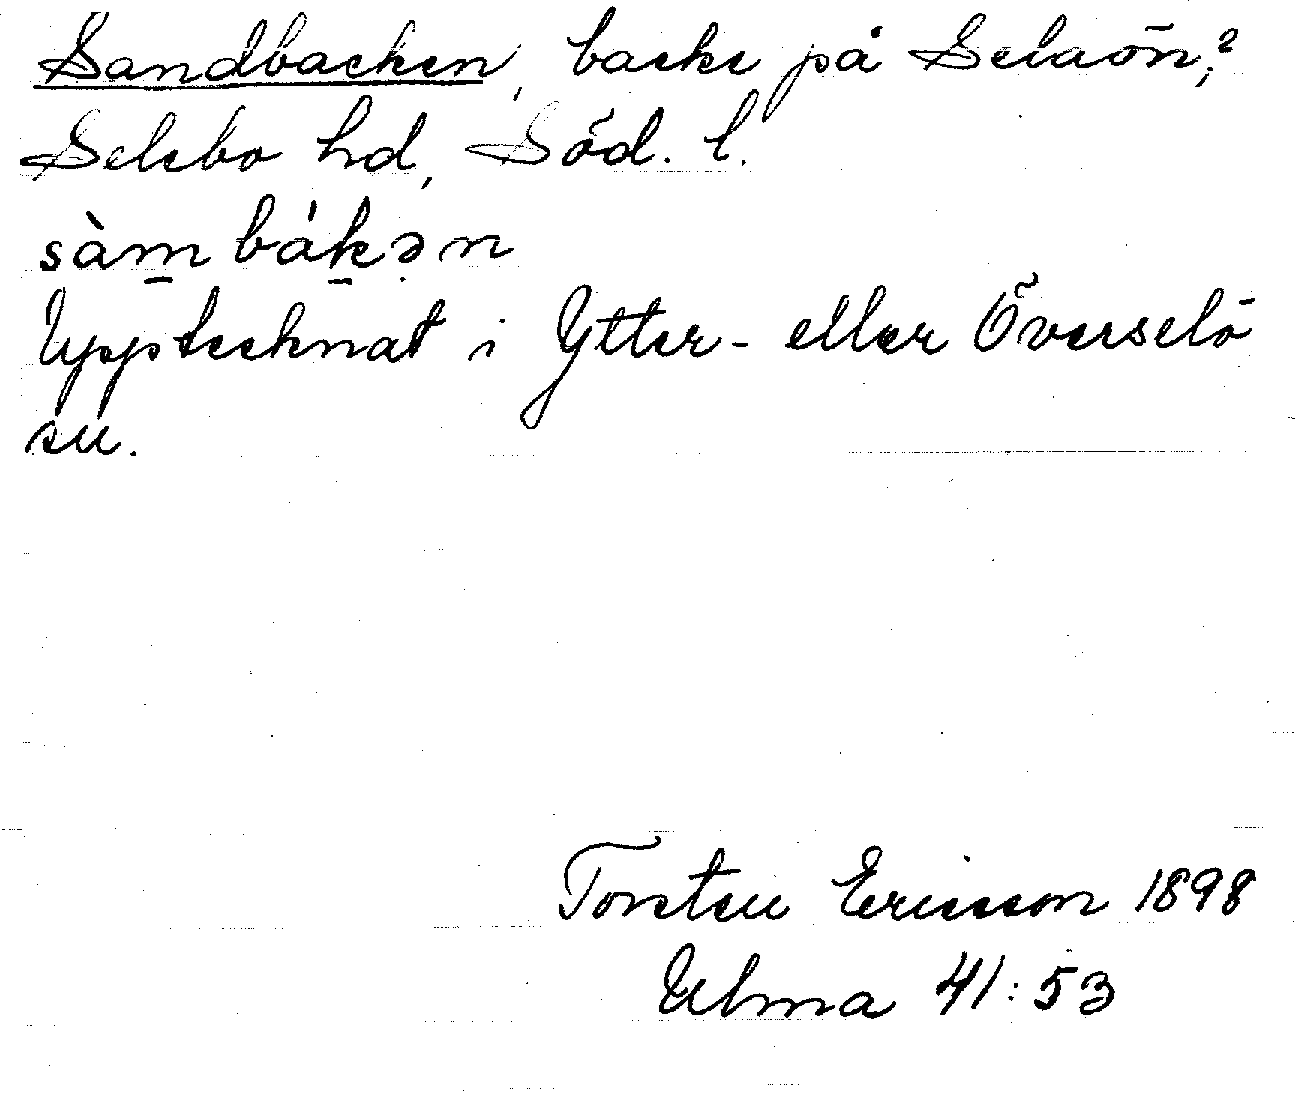 Sandbacken, backe på Selaön,?
Selebo hd, Söd. l.
sàm̠bák̠ən
Upptecknat i Ytter- eller Överselö
sn.
Torsten Ericsson 1898
Ulma 41:53